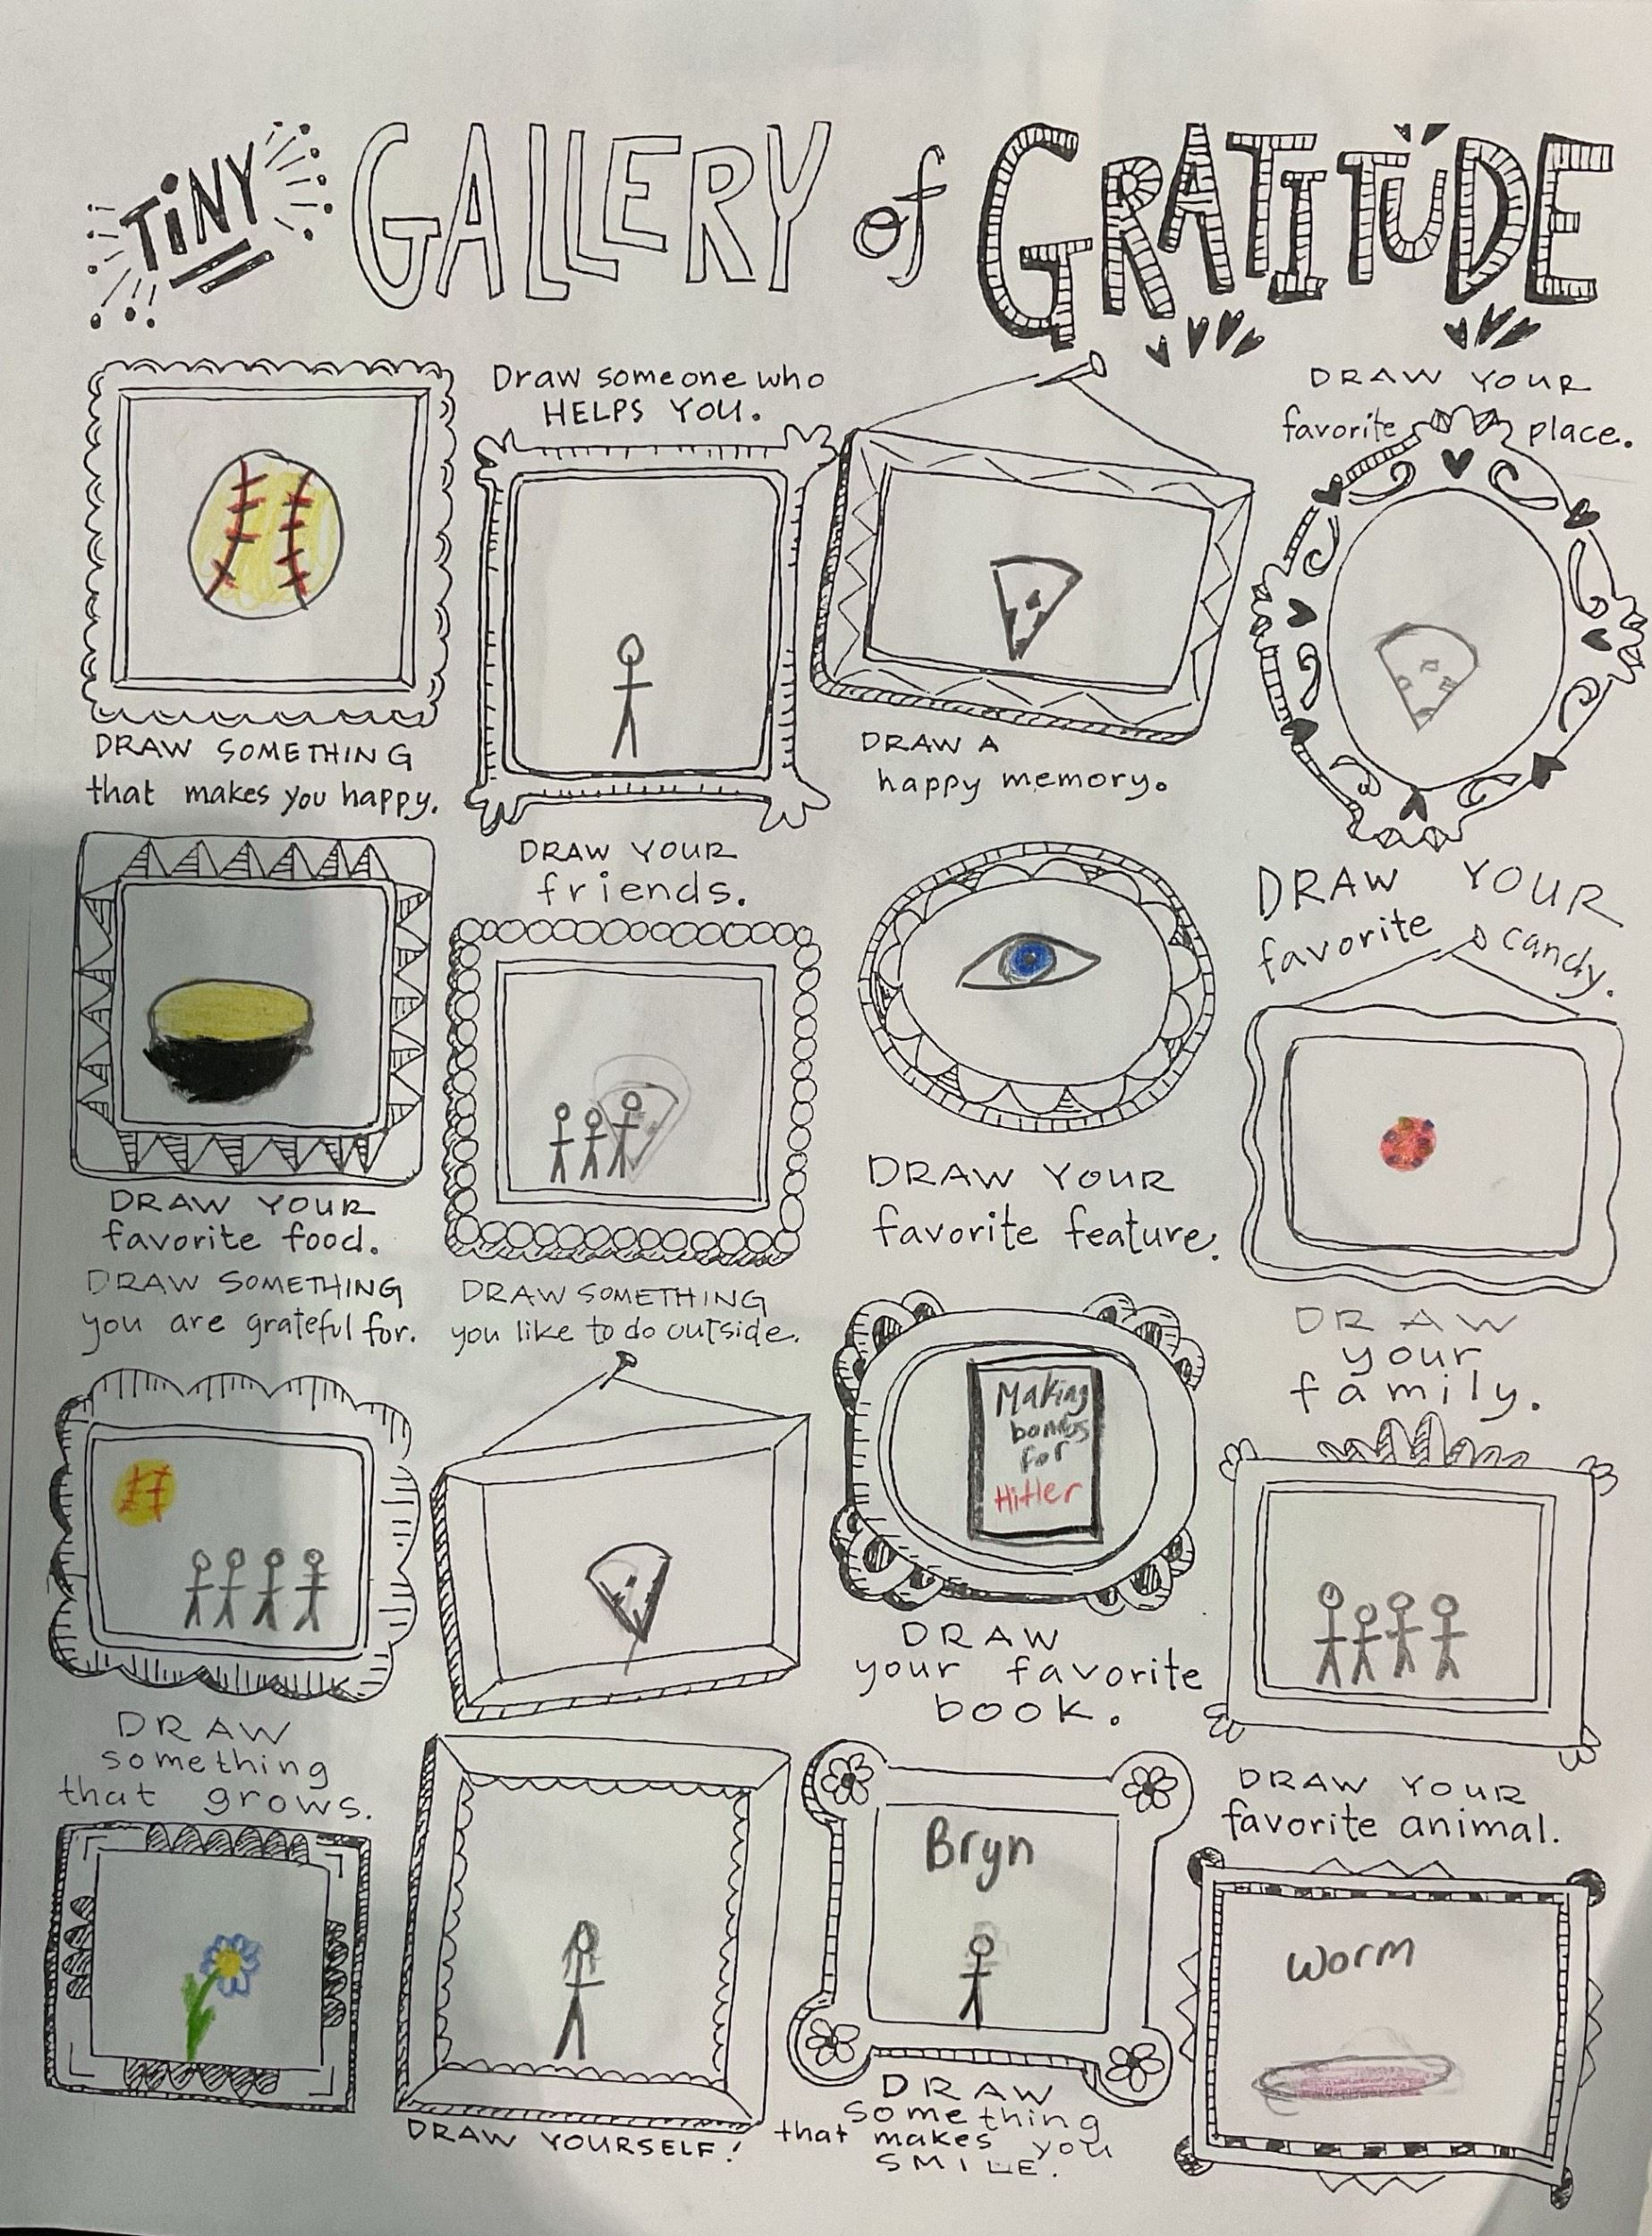 TINY GALLERY of GRATITUDE
Draw someone who
HELPS YOU.
DRAW YOUR
favorite place.
DRAW SOMETHING
that makes you happy.
DRAW A
happy memory.
DRAW YOUR
friends.
DRAW YOUR
favorite candy.
DRAW YOUR
favorite food.
DRAW YOUR
favorite feature.
DRAW SOMETHING
you are grateful for.
DRAW SOMETHING
you like to do outside.
DRAW
your
family.
Making
bombs
for
Hitler
DRAW
your favorite
book.
DRAW
something
that grows.
DRAW YOUR
favorite animal.
Bryn
worm
DRAW YOURSELF!
DRAW
something
that makes you
SMILE.